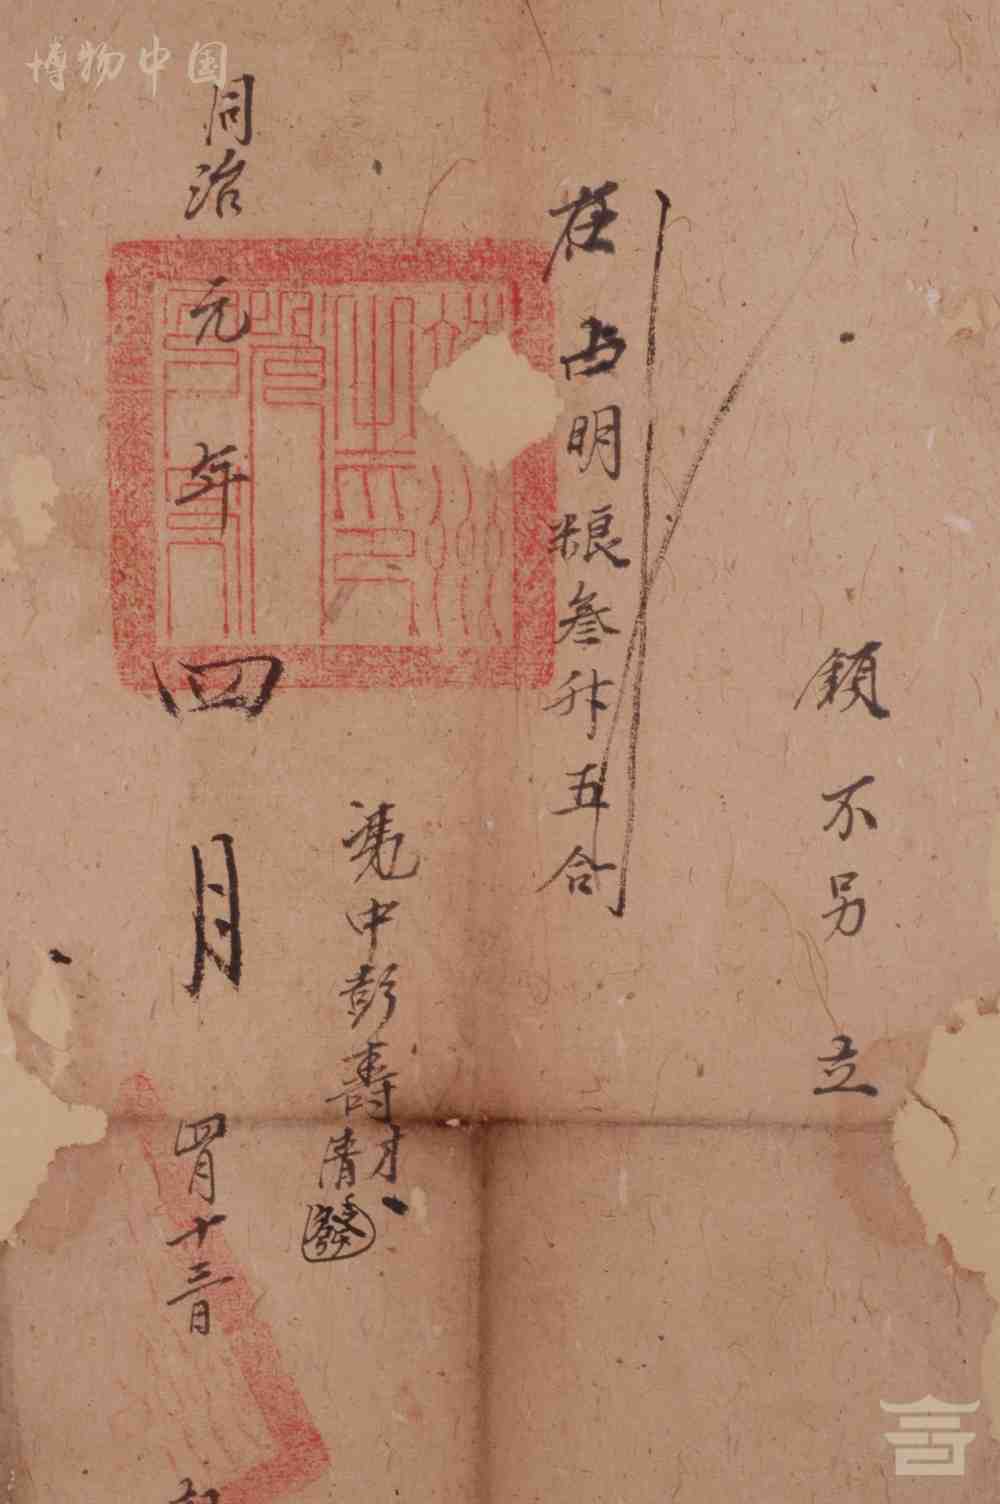 博物中国
領不另立
在占明粮叁升五合
凴中彭壽才
清發
同治元年四月
四月十三日